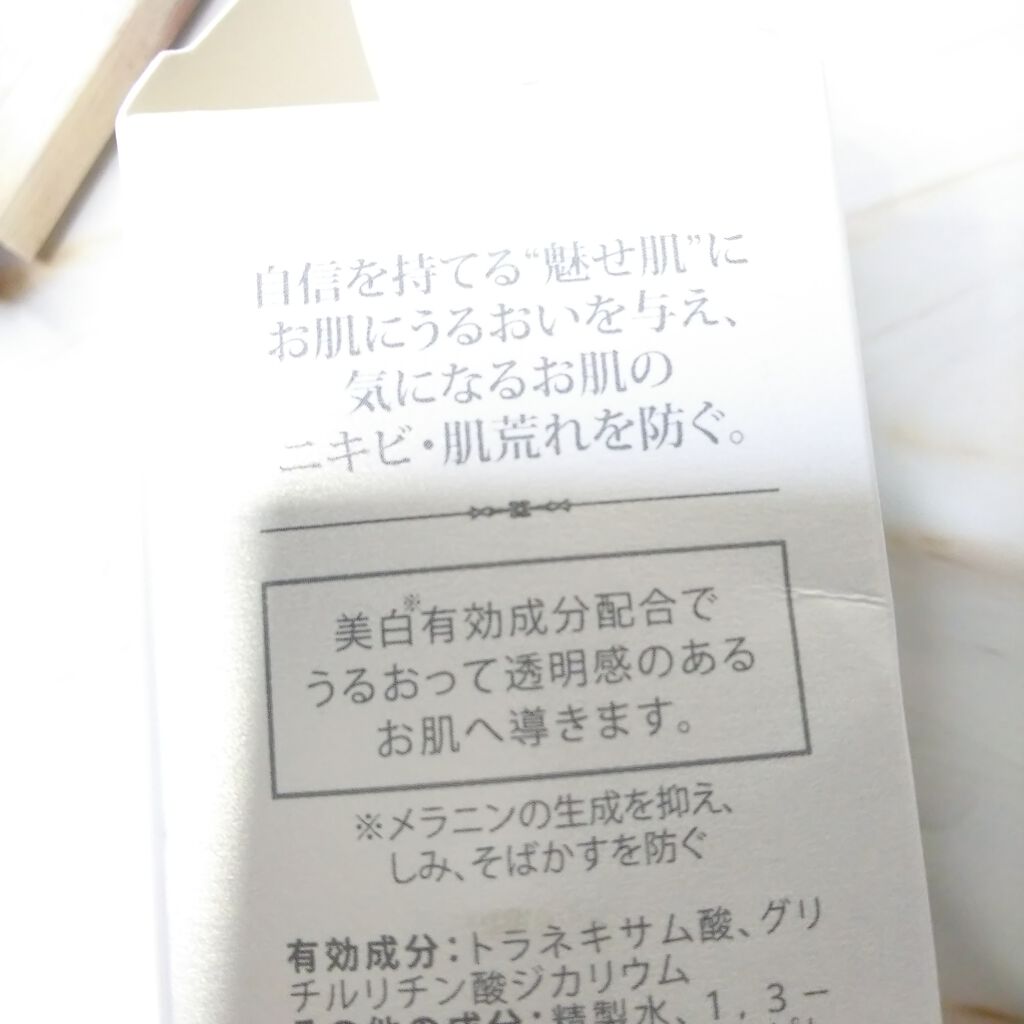 自信を持てる“魅せ肌”に
お肌にうるおいを与え、
気になるお肌の
ニキビ・肌荒れを防ぐ。
美白※有効成分配合で
うるおって透明感のある
お肌へ導きます。
※メラニンの生成を抑え、
しみ、そばかすを防ぐ
有効成分：トラネキサム酸、グリ
チルリチン酸ジカリウム
その他の成分：精製水、1，3－